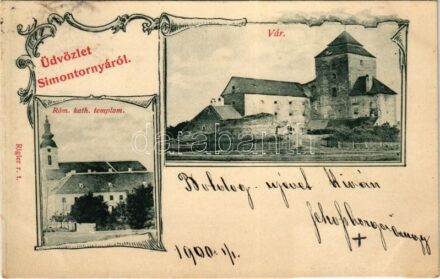 Üdvözlet
Simontornyáról.
Vár.
Róm. kath. templom.
Rigler r. t.
darabanth
Boldog újévet kíván
1900 1/1.